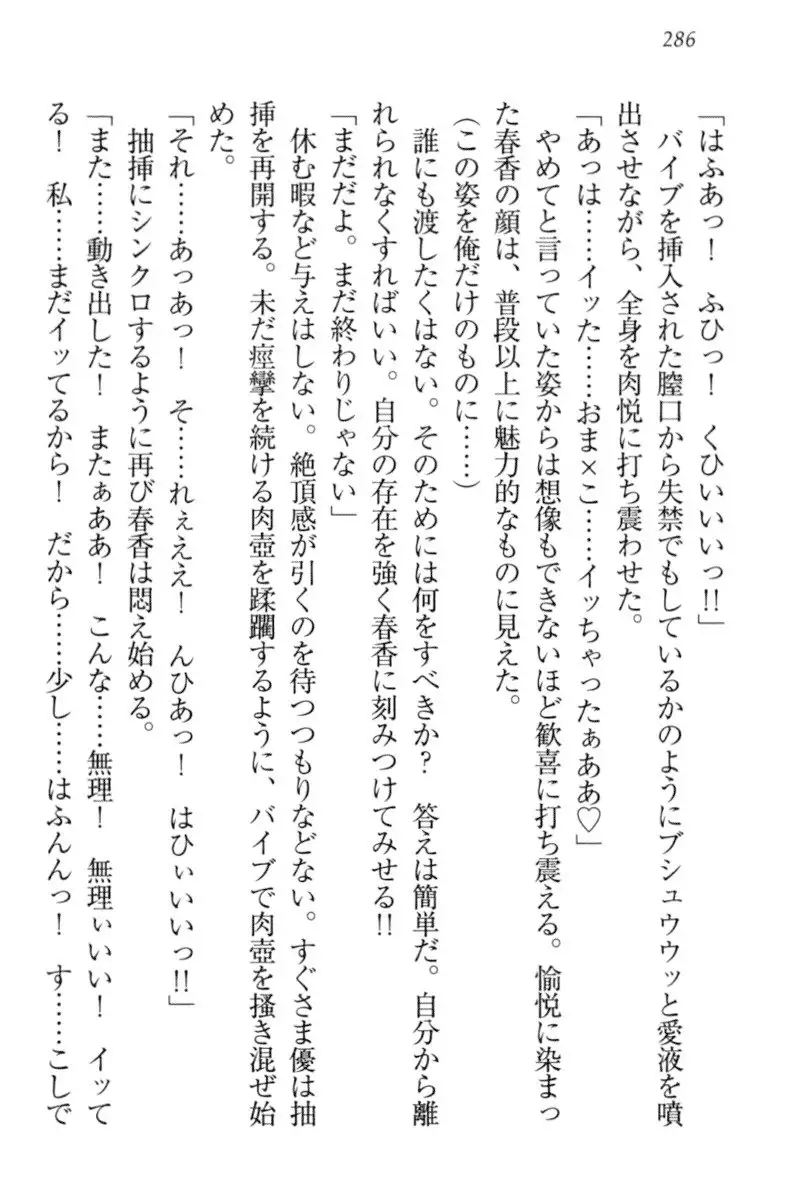 286
「はふあっ！　ふひっ！　くひいいいっ!!」
　バイブを挿入された膣口から失禁でもしているかのようにブシュウウッと愛液を噴
出させながら、全身を肉悦に打ち震わせた。
「あっは……イッた……おま×こ……イッちゃったぁああ♡」
　やめてと言っていた姿からは想像もできないほど歓喜に打ち震える。愉悦に染まっ
た春香の顔は、普段以上に魅力的なものに見えた。
（この姿を俺だけのものに……）
　誰にも渡したくはない。そのためには何をすべきか？　答えは簡単だ。自分から離
れられなくすればいい。自分の存在を強く春香に刻みつけてみせる!!
「まだだよ。まだ終わりじゃない」
　休む暇など与えはしない。絶頂感が引くのを待つつもりなどない。すぐさま優は抽
挿を再開する。未だ痙攣を続ける肉壺を蹂躙するように、バイブで肉壺を掻き混ぜ始
めた。
「それ……あっあっ！　そ……れぇええ！　んひあっ！　はひぃいいっ!!」
　抽挿にシンクロするように再び春香は悶え始める。
「また……動き出した！　またぁああ！　こんな……無理！　無理ぃいい！　イッて
る！　私……まだイッてるから！　だから……少し……はふんんっ！　す……こしで